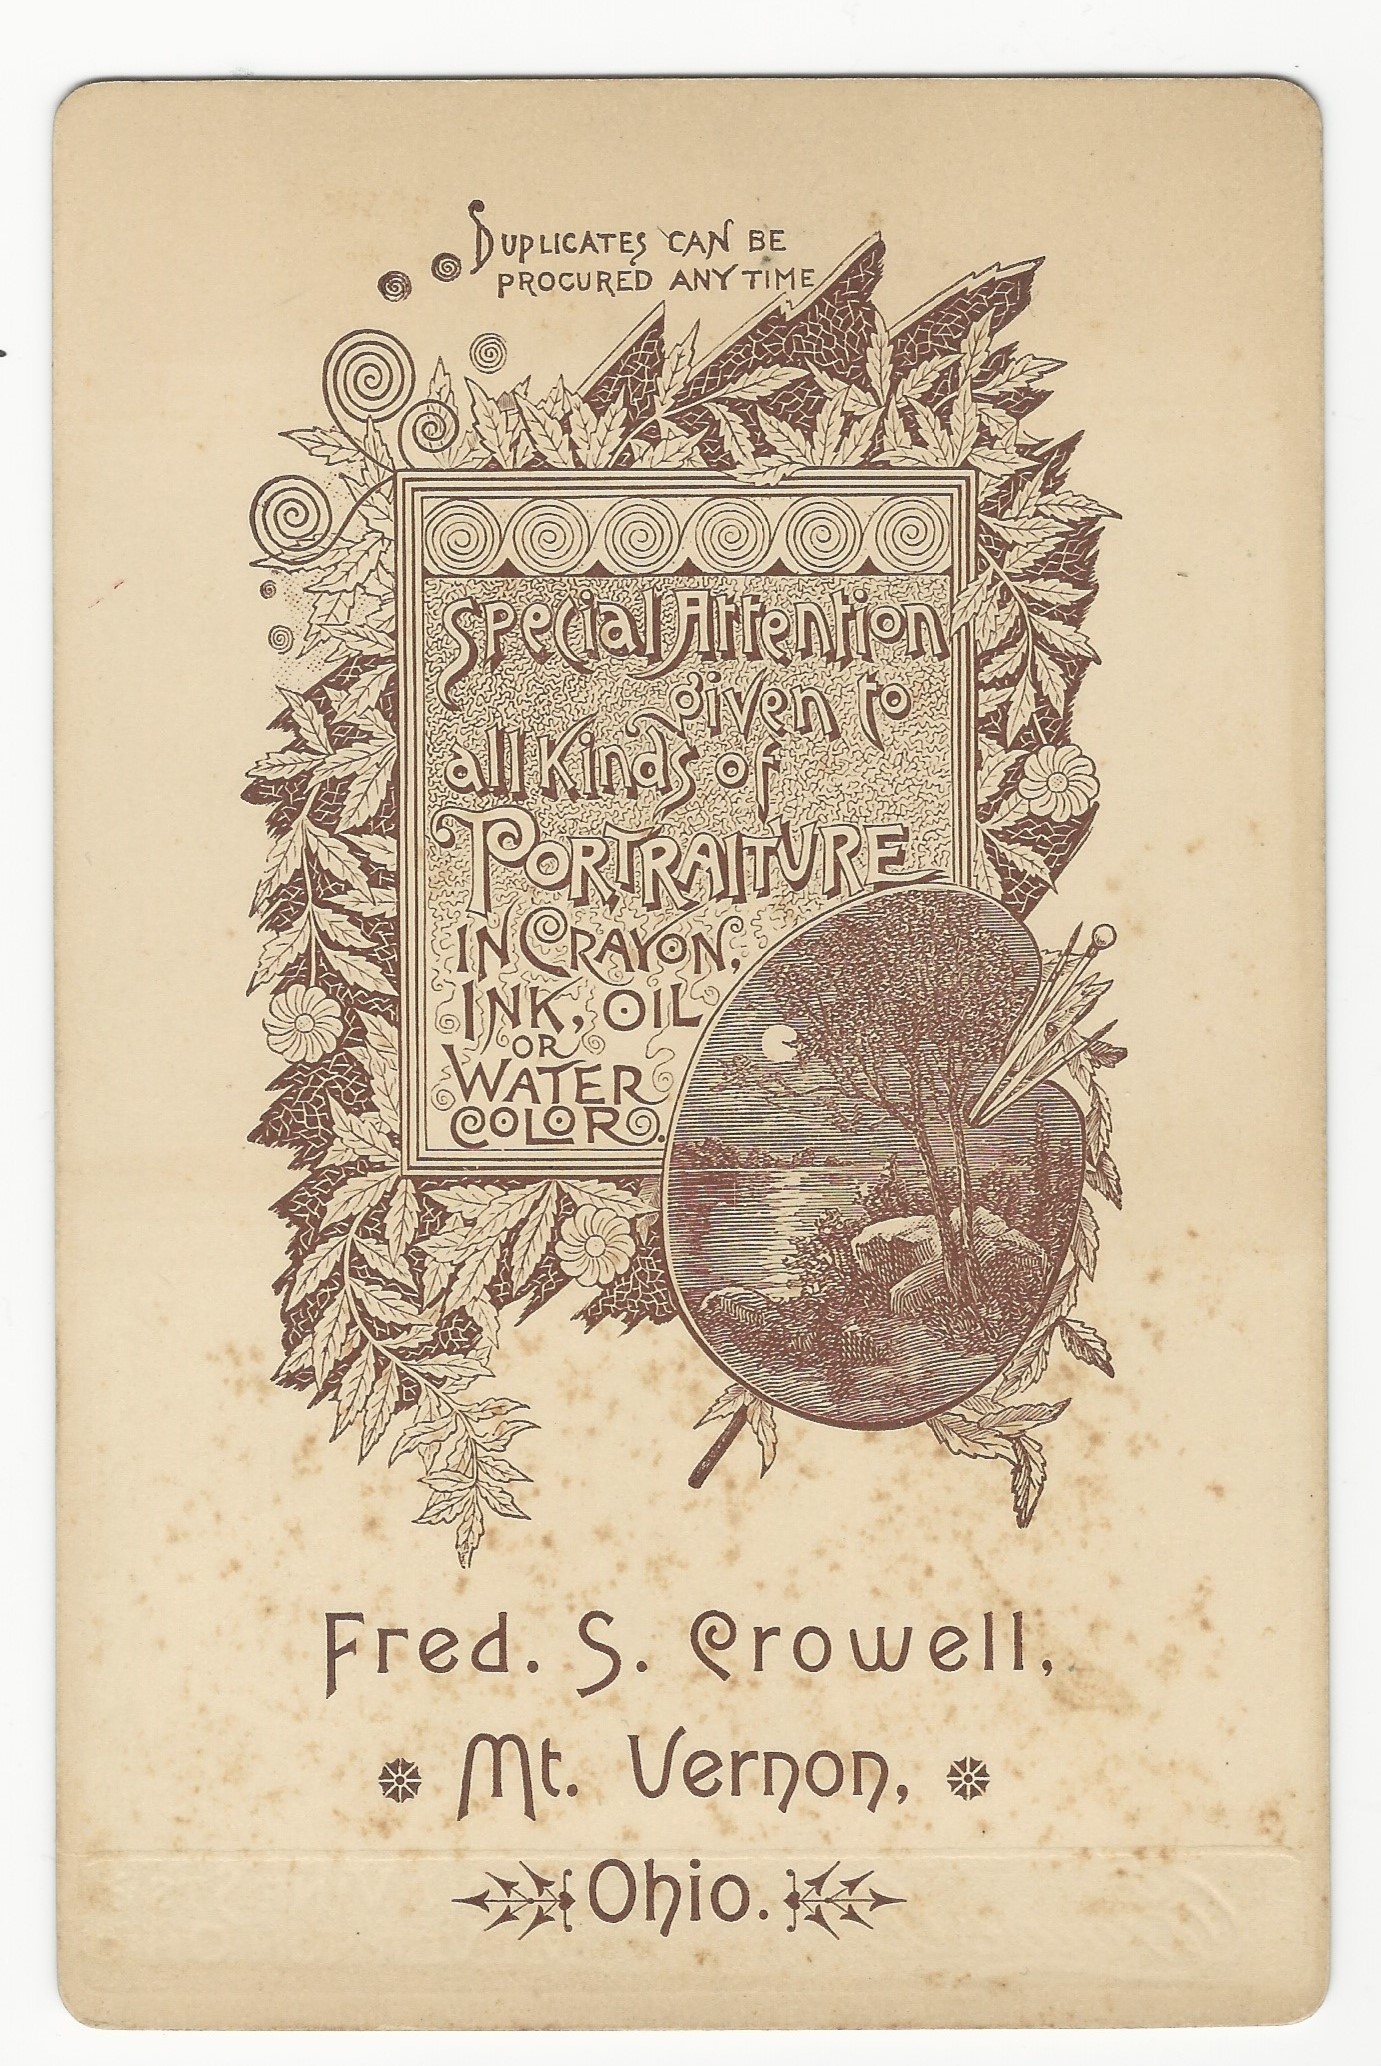 DUPLICATES CAN BE
PROCURED ANY TIME
Special Attention
given to
all Kinds of
PORTRAITURE
IN CRAYON,
INK, OIL
OR
WATER
COLOR.
Fred. S. Crowell,
Mt. Vernon,
Ohio.